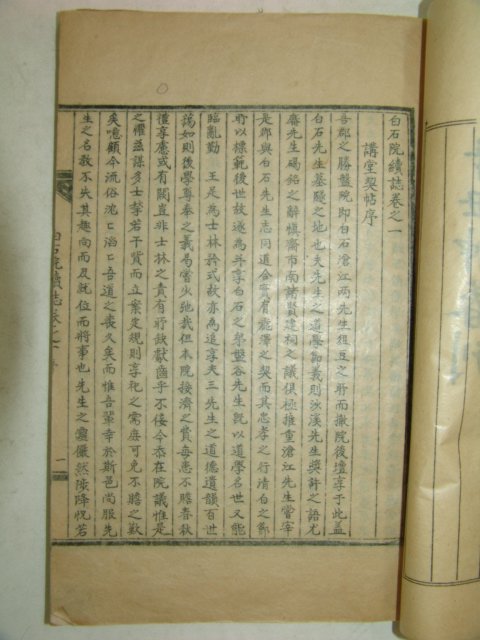 白石院續誌卷之一
講堂契帖序
吾郡之勝盤院即白石滄江兩先生俎豆之所而撤院後壇享于此盖
白石先生墓隧之地也夫先生之道學節義則浊溪先生奬許之語尤
齋先生碣銘之辭愼齋市南諸賢建祠之議俱極推重滄江先生嘗宰
是郡與白石先生志同道合實有麗澤之契而其忠孝之行清白之節
所以標範後世故遂爲并享白石之學盤谷先生旣以道學名世又能
臨亂勤 王足為士林矜式故亦為追享夫三先生之道德遺韻百世
蕩如則後學尊奉之義曷嘗少弛哉但本院接濟之貲每患不贍春秋
禋享應或有闕豈非士林之責有所歉獻齒乎不佞今忝在院議惟是
之懼兹謀多士拏若干貲而立案定規則享祀之需庶可免不贍之歎
矣噫顧今流俗沈〻滔〻吾道之喪久矣而惟吾輩幸於斯邑尚服先
生之名敎不失其趣向而及就位而將事也先生之靈儼然陟降怳若
白石院續誌卷之一 序
一